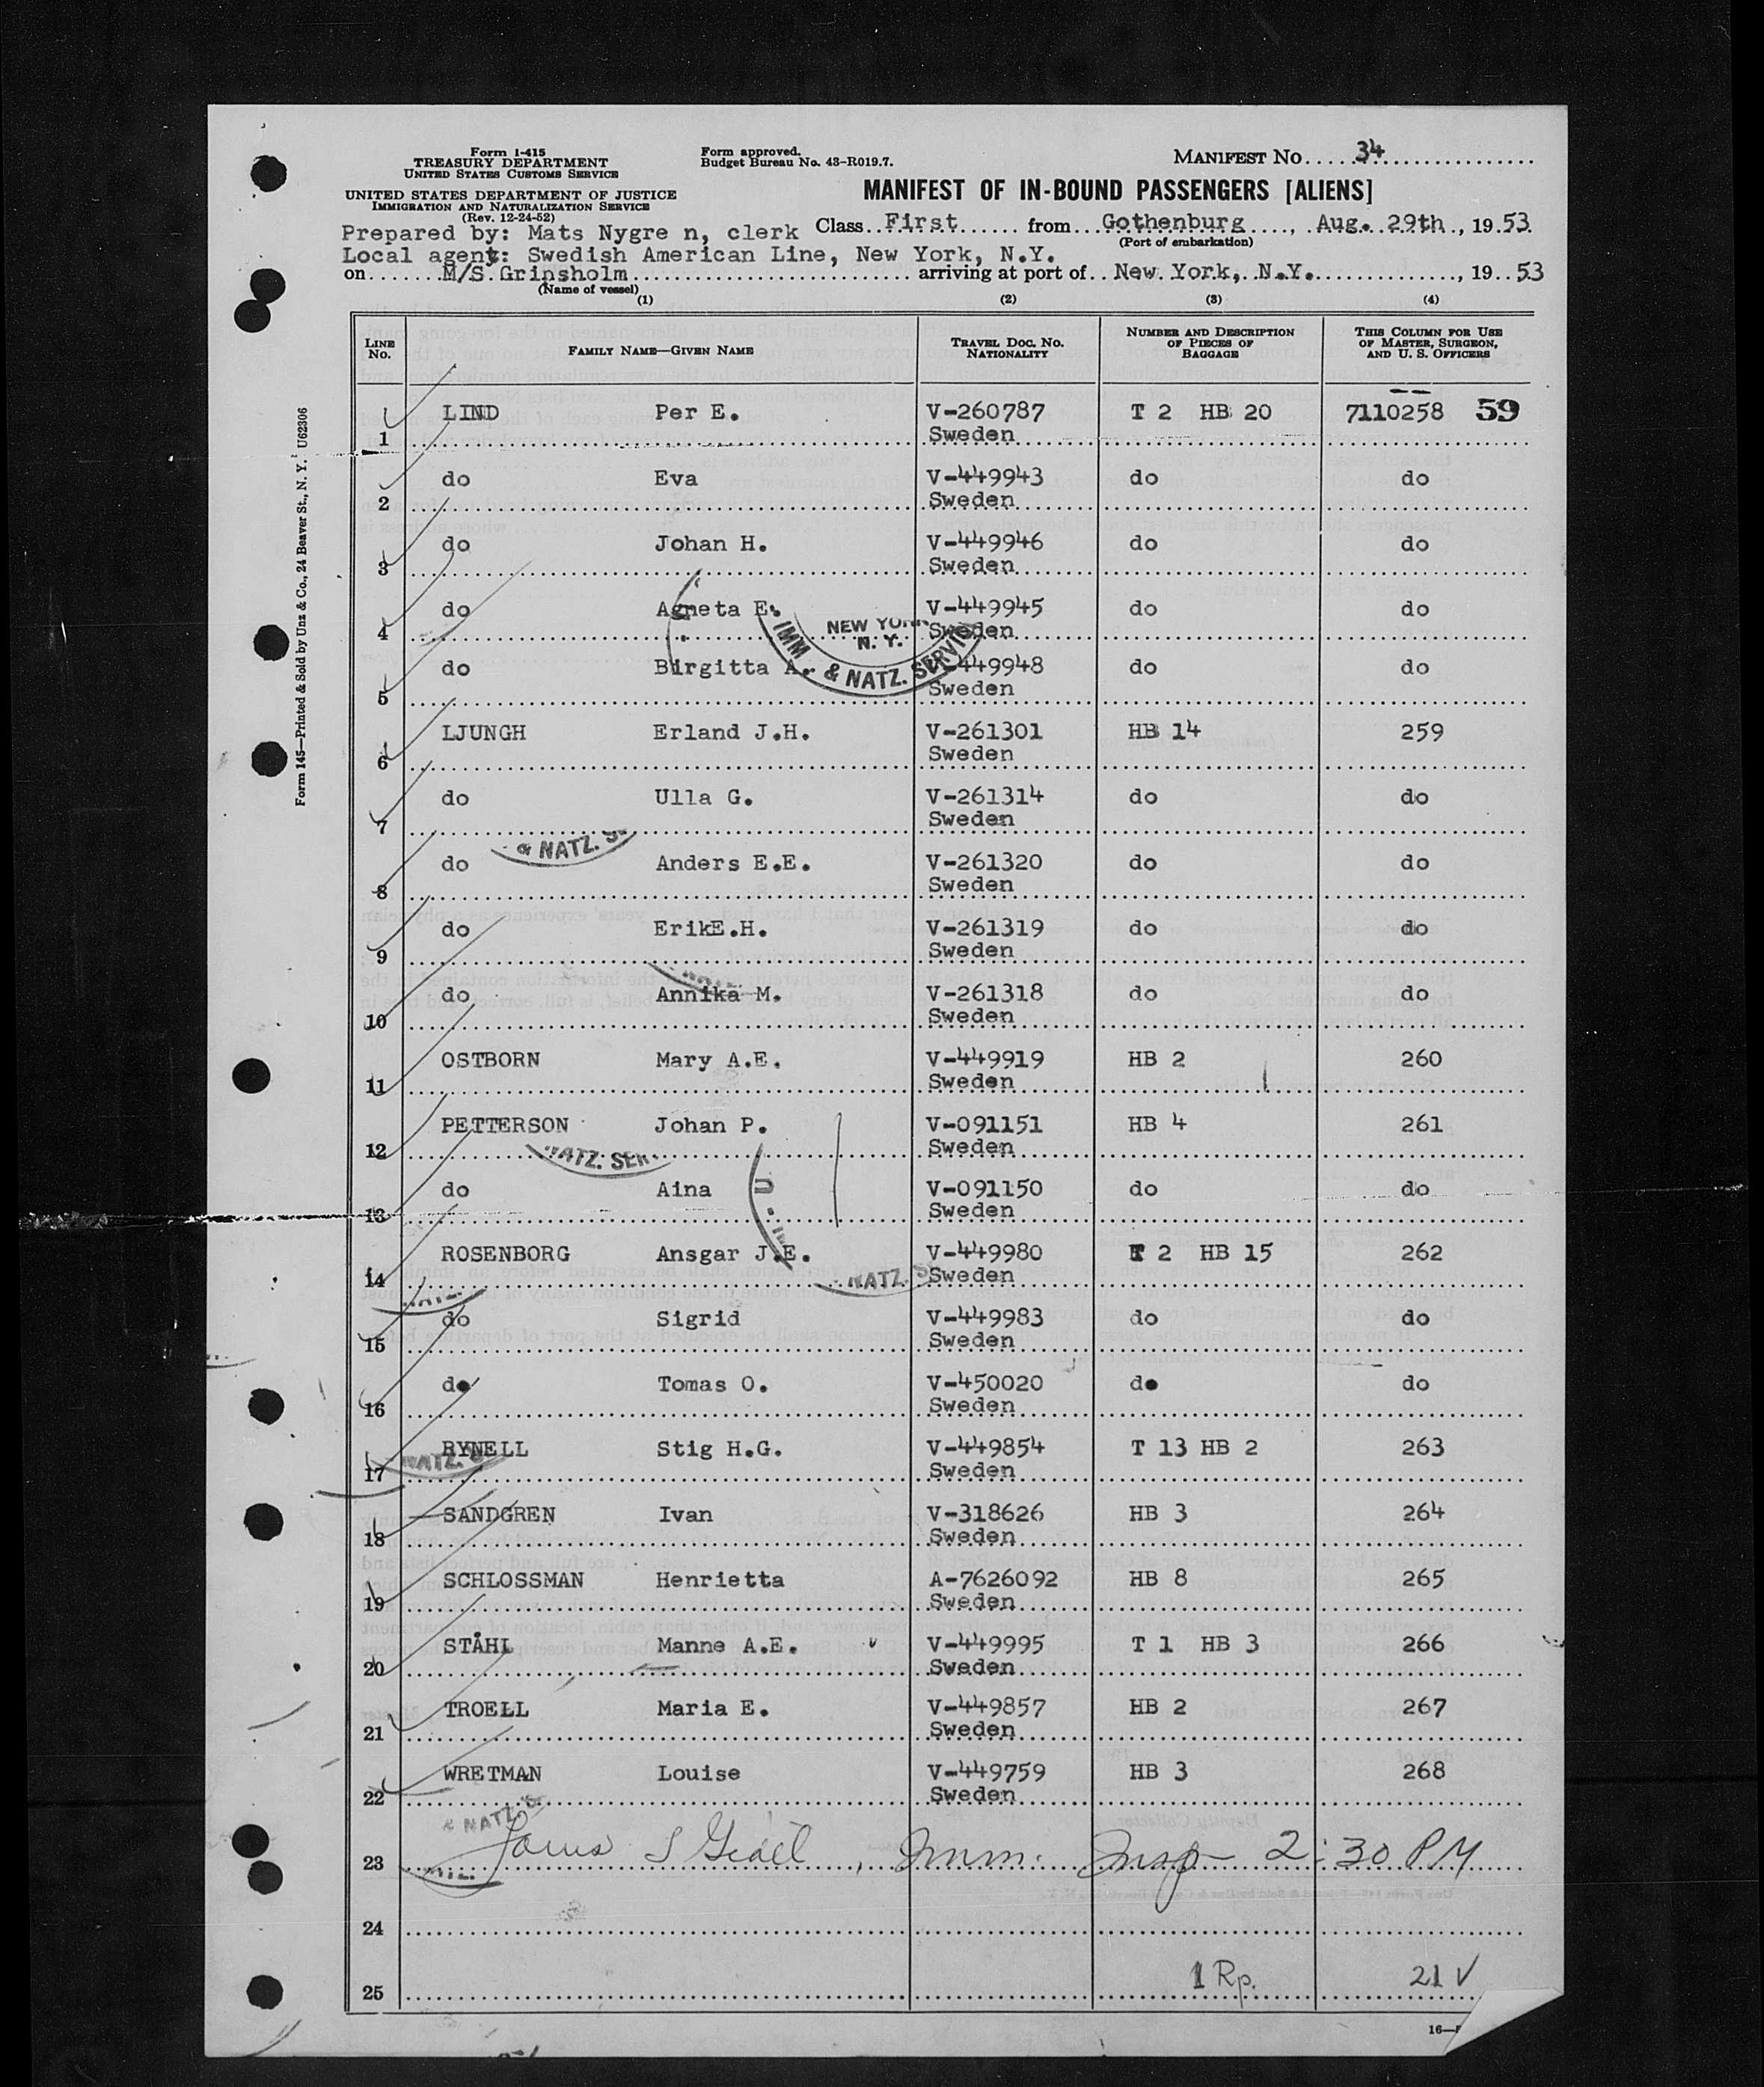 Form I-415
TREASURY DEPARTMENT
UNITED STATES CUSTOMS SERVICE
UNITED STATES DEPARTMENT OF JUSTICE
IMMIGRATION AND NATURALIZATION SERVICE
(Rev. 12-24-52)
Form approved.
Budget Bureau No. 43-R019.7.
MANIFEST No. 34
MANIFEST OF IN-BOUND PASSENGERS [ALIENS]
Prepared by: Mats Nygre n, clerk Class First from Gothenburg, Aug. 29th, 1953
(Port of embarkation)
Local agent: Swedish American Line, New York, N.Y.
on M/S Gripsholm arriving at port of New York, N.Y., 19 53
(Name of vessel)
(1) (2) (3) (4)
LINE No. FAMILY NAME—GIVEN NAME TRAVEL DOC. NO. NATIONALITY NUMBER AND DESCRIPTION OF PIECES OF BAGGAGE THIS COLUMN FOR USE OF MASTER, SURGEON, AND U. S. OFFICERS
1 LIND Per E. V-260787 Sweden T 2 HB 20 7110258 59
2 do Eva V-449943 Sweden do do
3 do Johan H. V-449946 Sweden do do
4 do Agneta E. V-449945 Sweden do do
NEW YORK N. Y.
IMM. & NATZ. SERVICE
5 do Birgitta A. V-449948 Sweden do do
6 LJUNGH Erland J.H. V-261301 Sweden HB 14 259
7 do Ulla G. V-261314 Sweden do do
& NATZ. S
8 do Anders E.E. V-261320 Sweden do do
9 do ErikE.H. V-261319 Sweden do do
10 do Annika M. V-261318 Sweden do do
11 OSTBORN Mary A.E. V-449919 Sweden HB 2 260
12 PETTERSON Johan P. V-091151 Sweden HB 4 261
NATZ. SER
13 do Aina V-091150 Sweden do do
14 ROSENBORG Ansgar J.E. V-449980 Sweden T 2 HB 15 262
NATZ. S
15 do Sigrid V-449983 Sweden do do
16 do Tomas O. V-450020 Sweden do do
17 RYNELL Stig H.G. V-449854 Sweden T 13 HB 2 263
NATZ. S
18 SANDGREN Ivan V-318626 Sweden HB 3 264
19 SCHLOSSMAN Henrietta A-7626092 Sweden HB 8 265
20 STÅHL Manne A.E. V-449995 Sweden T 1 HB 3 266
21 TROELL Maria E. V-449857 Sweden HB 2 267
22 WRETMAN Louise V-449759 Sweden HB 3 268
& NATZ. S
23 Imm. Insp 2:30 PM
24
25 1 Rp. 21 V
16—
Form 145—Printed & Sold by Unz & Co., 24 Beaver St., N. Y. U62306